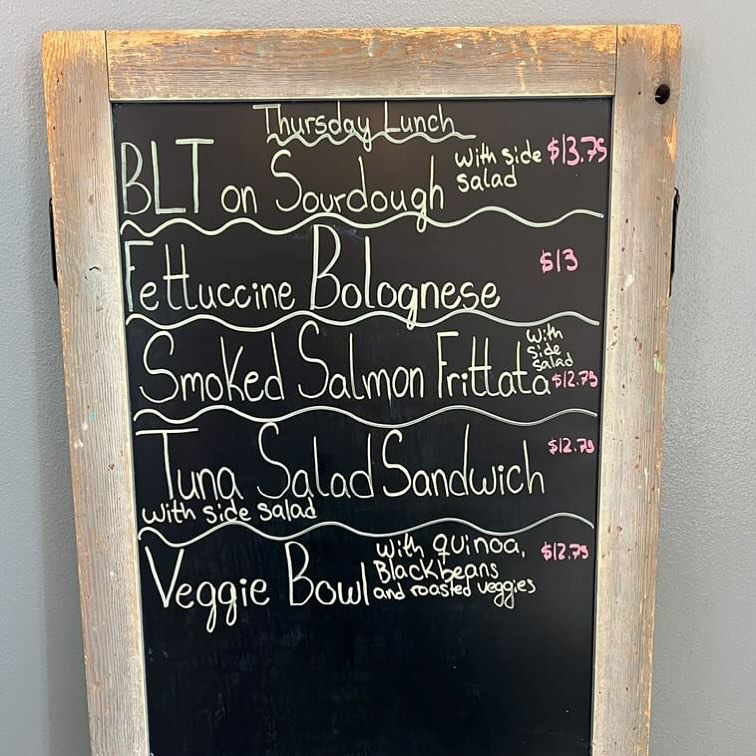 Thursday Lunch
BLT on Sourdough with side salad $13.75
Fettuccine Bolognese $13
Smoked Salmon Frittata with side salad $12.75
Tuna Salad Sandwich $12.75
with side salad
Veggie Bowl with quinoa, Blackbeans and roasted veggies $12.75